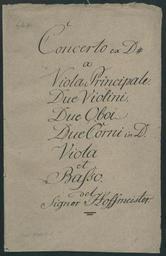 Concerto ex D#
a
Viola Principale.
Due Violini.
Due Oboi
Due Corni in D.
Viola
et
Basso.
del
Signor Hoffmeister.